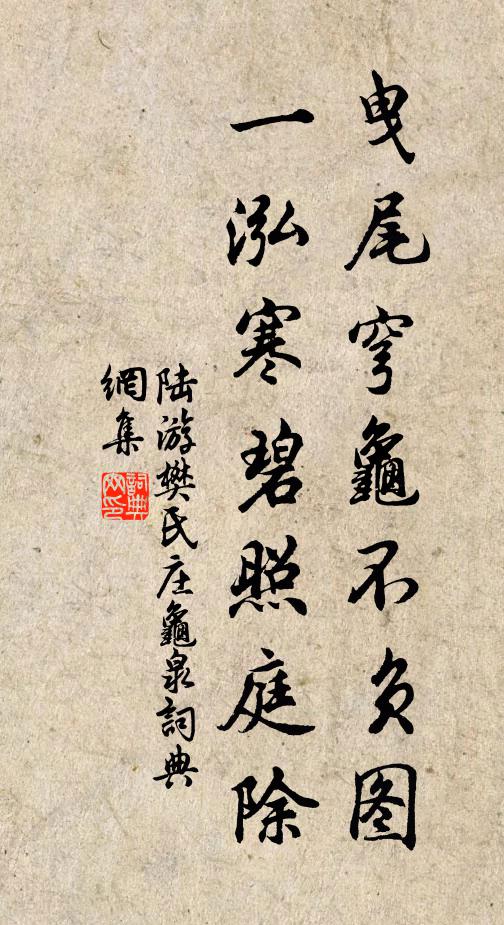 曳尾穹龜不负图
一泓寒碧照庭除
陆游樊氏庄龜泉詞典
網集
詞典
网印